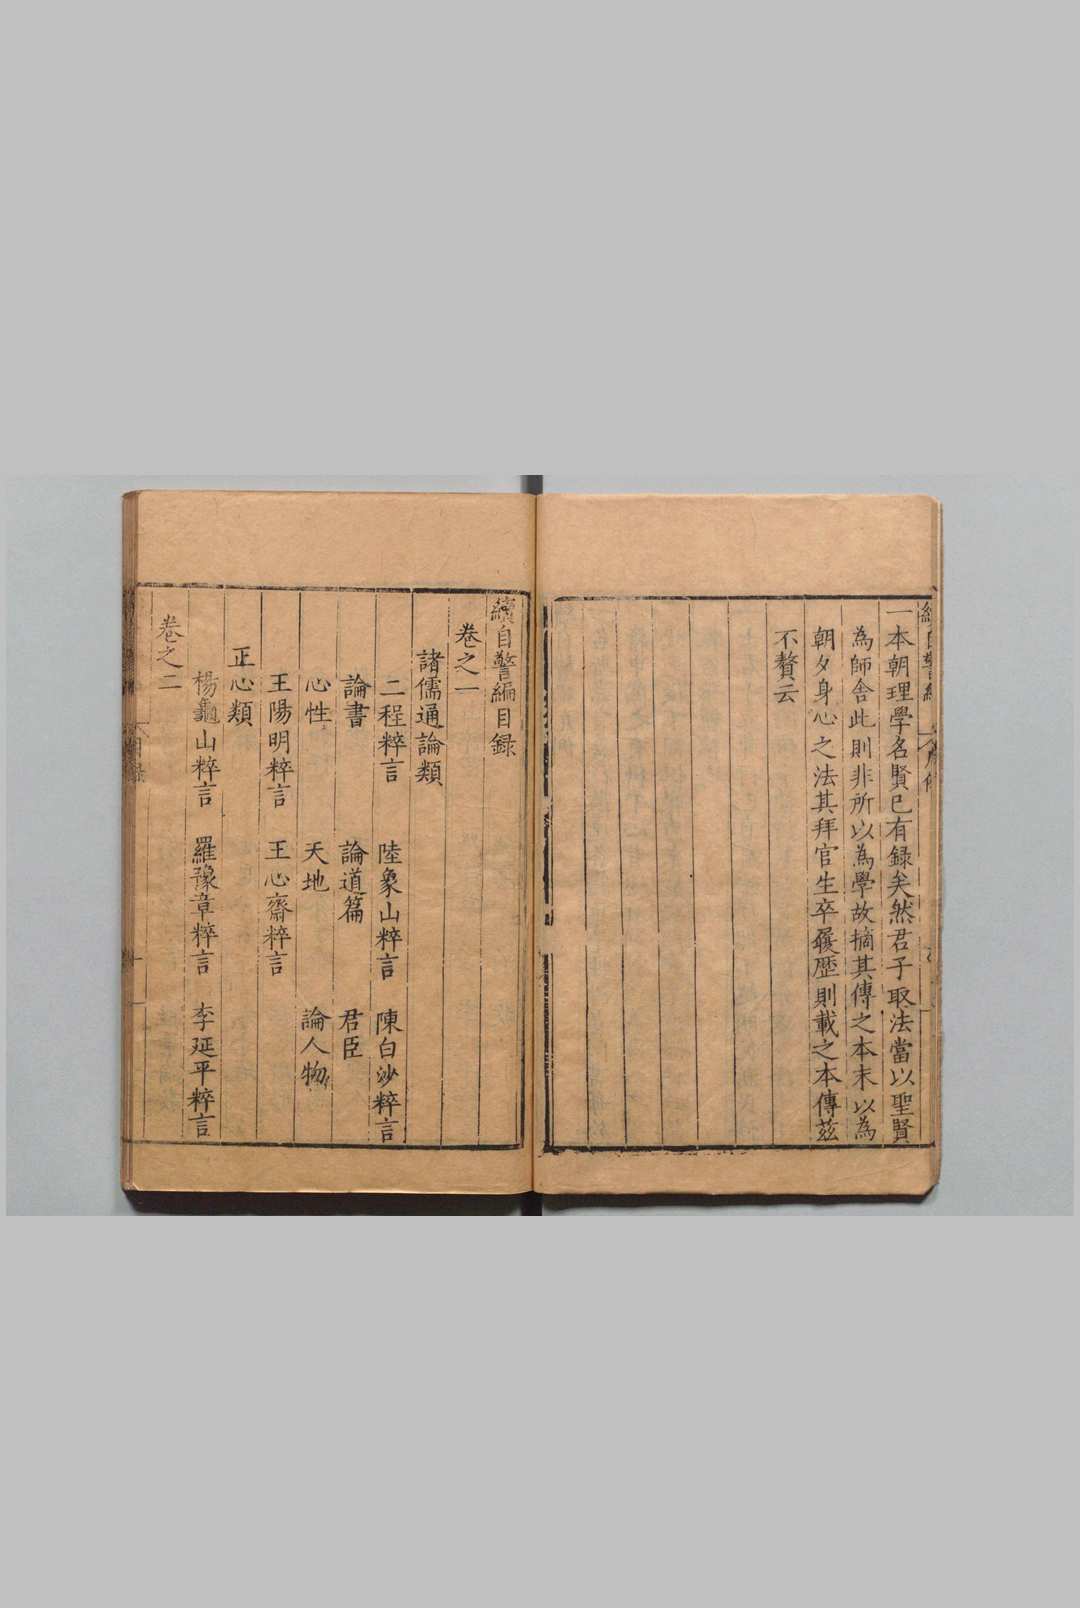 一本朝理學名賢已有録矣然君子取法當以聖賢
為師舍此則非所以為學故摘其傳之本末以為
朝夕身心之法其拜官生卒履歷則載之本傳茲
不贅云
續自警編目録
卷之一
諸儒通論類
二程粹言 陸象山粹言 陳白沙粹言
論書 論道篇 君臣
心性 天地 論人物
王陽明粹言 王心齋粹言
正心類
楊龜山粹言 羅豫章粹言 李延平粹言
卷之二